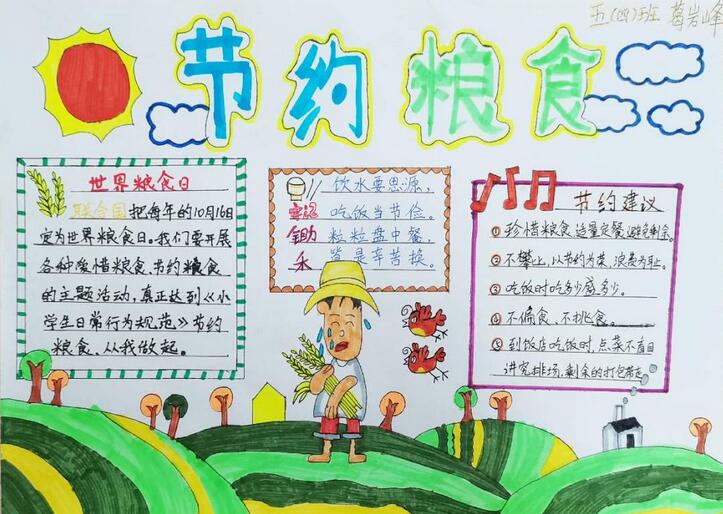 五(四)班 葛岩峰
节约粮食
世界粮食日
联合国把每年的10月16日
定为世界粮食日。我们要开展
各种爱惜粮食、节约粮食
的主题活动,真正达到《小
学生日常行为规范》节约
粮食、从我做起。
饮水要思源,
吃饭当节俭。
粒粒盘中餐,
皆是辛苦换。
锄
禾
节约建议
①珍惜粮食,适量定餐,避免剩余。
②不攀比,以节约为荣,浪费为耻。
③吃饭时吃多少盛多少。
④不偏食、不挑食。
⑤到饭店吃饭时,点菜不盲目
讲究排场,剩余的打包带走